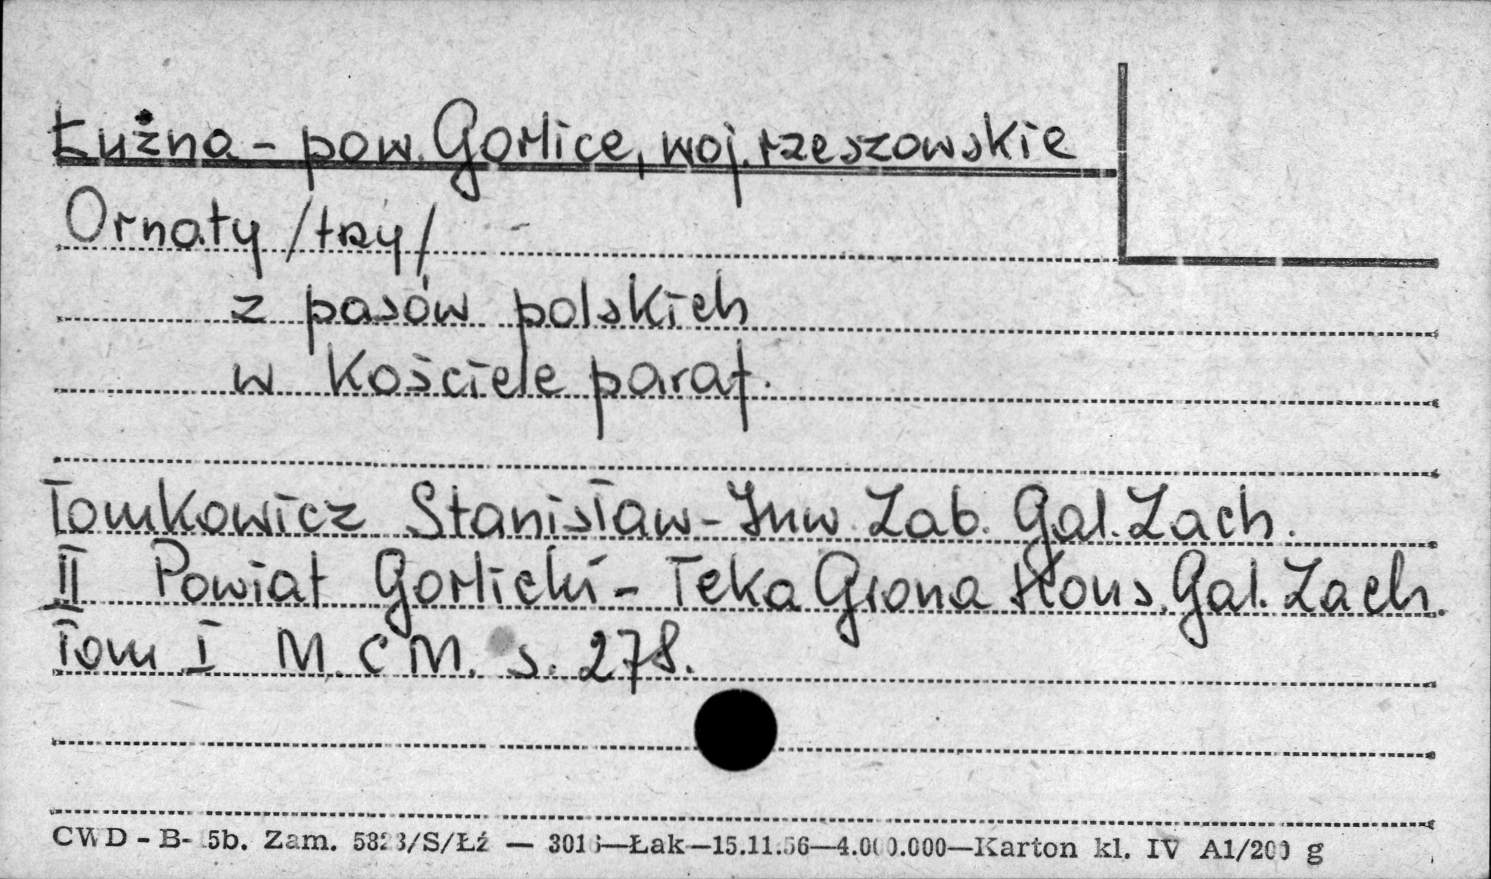 Łużna - pow. Gorlice, woj. rzeszowskie
Ornaty /trzy/
z pasów polskich
w kościele paraf.
Tomkowicz Stanisław - Inw. Zab. Gal. Zach.
II Powiat Gorlicki - Teka Grona Kons. Gal. Zach.
Tom I M. C M. s. 278.
CWD - B- 5b. Zam. 5323/S/Łź — 3016—Łak—15.11.56—4.000.000—Karton kl. IV A1/200 g